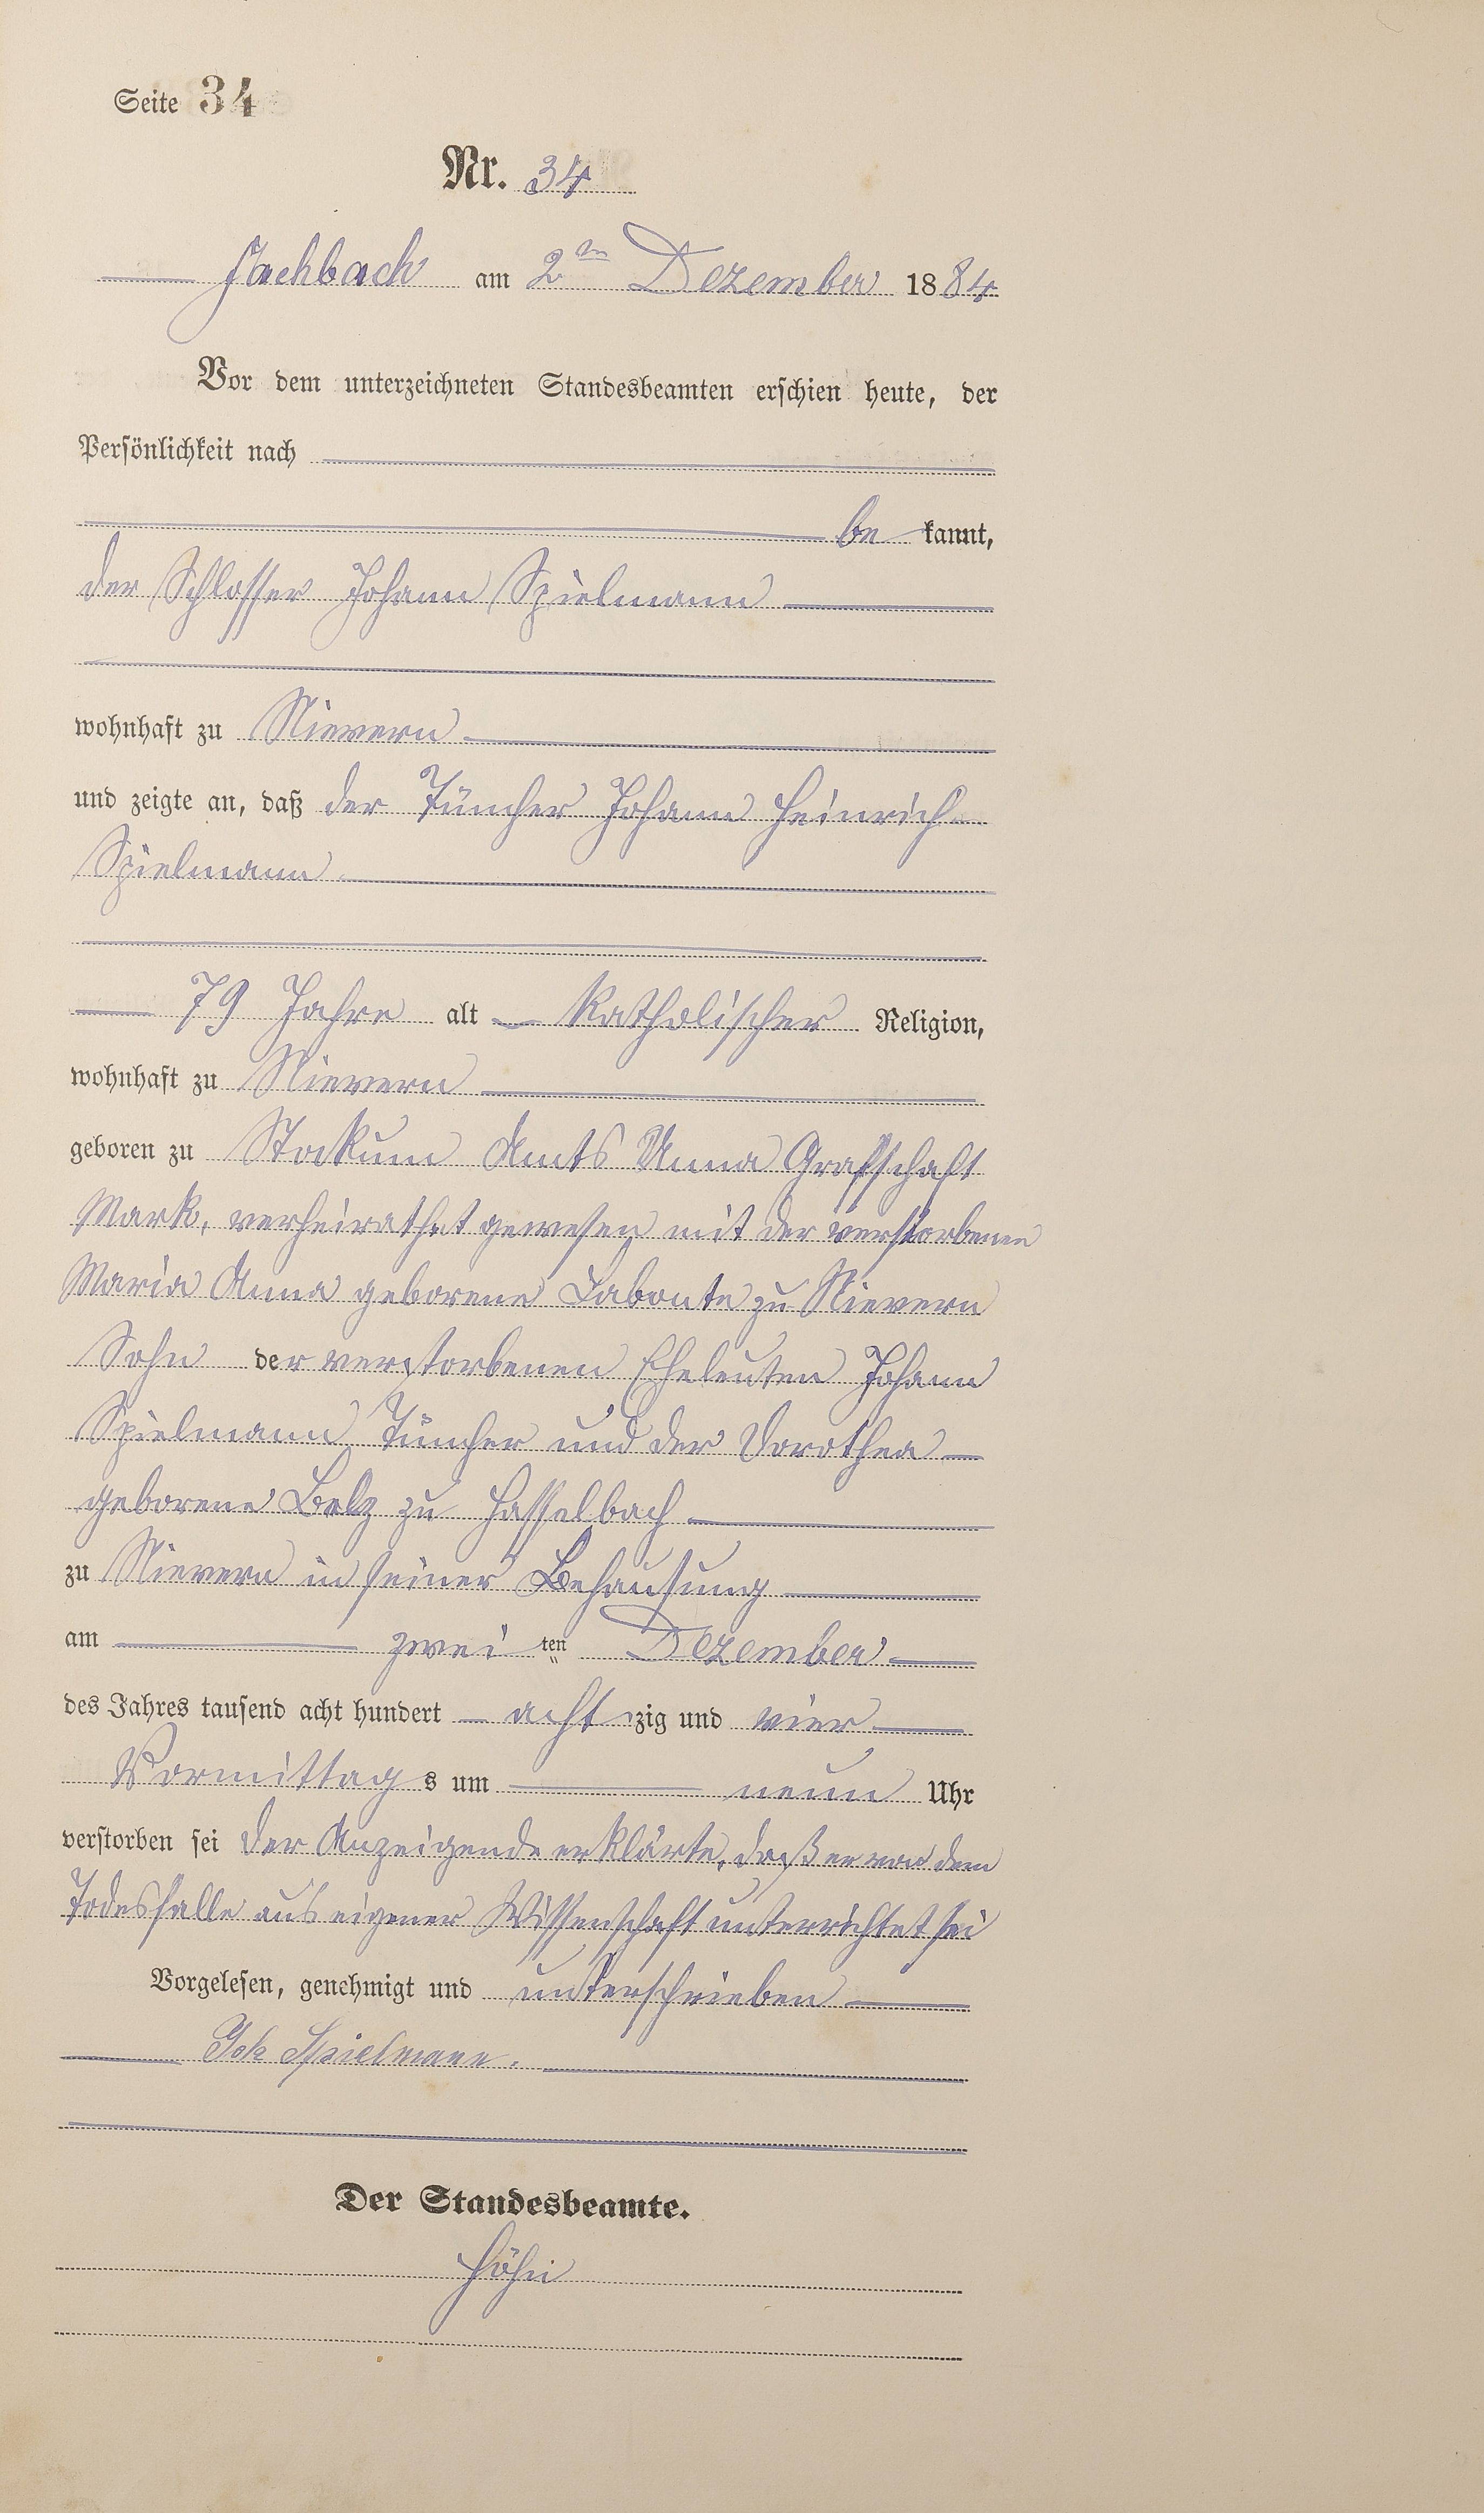 Seite 34
Nr. 34
Fachbach am 2ten Dezember 1884
Vor dem unterzeichneten Standesbeamten erschien heute, der
Persönlichkeit nach
be kannt,
der Schlosser Johann Spielmann
wohnhaft zu Nievern
und zeigte an, daß der Tüncher Johann Heinrich
Spielmann
79 Jahre alt katholischer Religion,
wohnhaft zu Nievern
geboren zu Stockum Amts Unna Grafschaft
Mark, verheirathet gewesen mit der verstorbenen
Maria Anna geborene Labonte zu Nievern
Sohn der verstorbenen Eheleuten Johann
Spielmann Tüncher und der Dorothea
geborene Belz zu Hasselbach
zu Nievern in seiner Behausung
am zwei ten Dezember
des Jahres tausend acht hundert acht zig und vier
Vormittag s um neun Uhr
verstorben sei der Anzeigende erklärte, daß er von dem
Todesfalle aus eigener Wissenschaft unterrichtet sei
Vorgelesen, genehmigt und unterschrieben
Joh Spielmann.
Der Standesbeamte.
Höhn